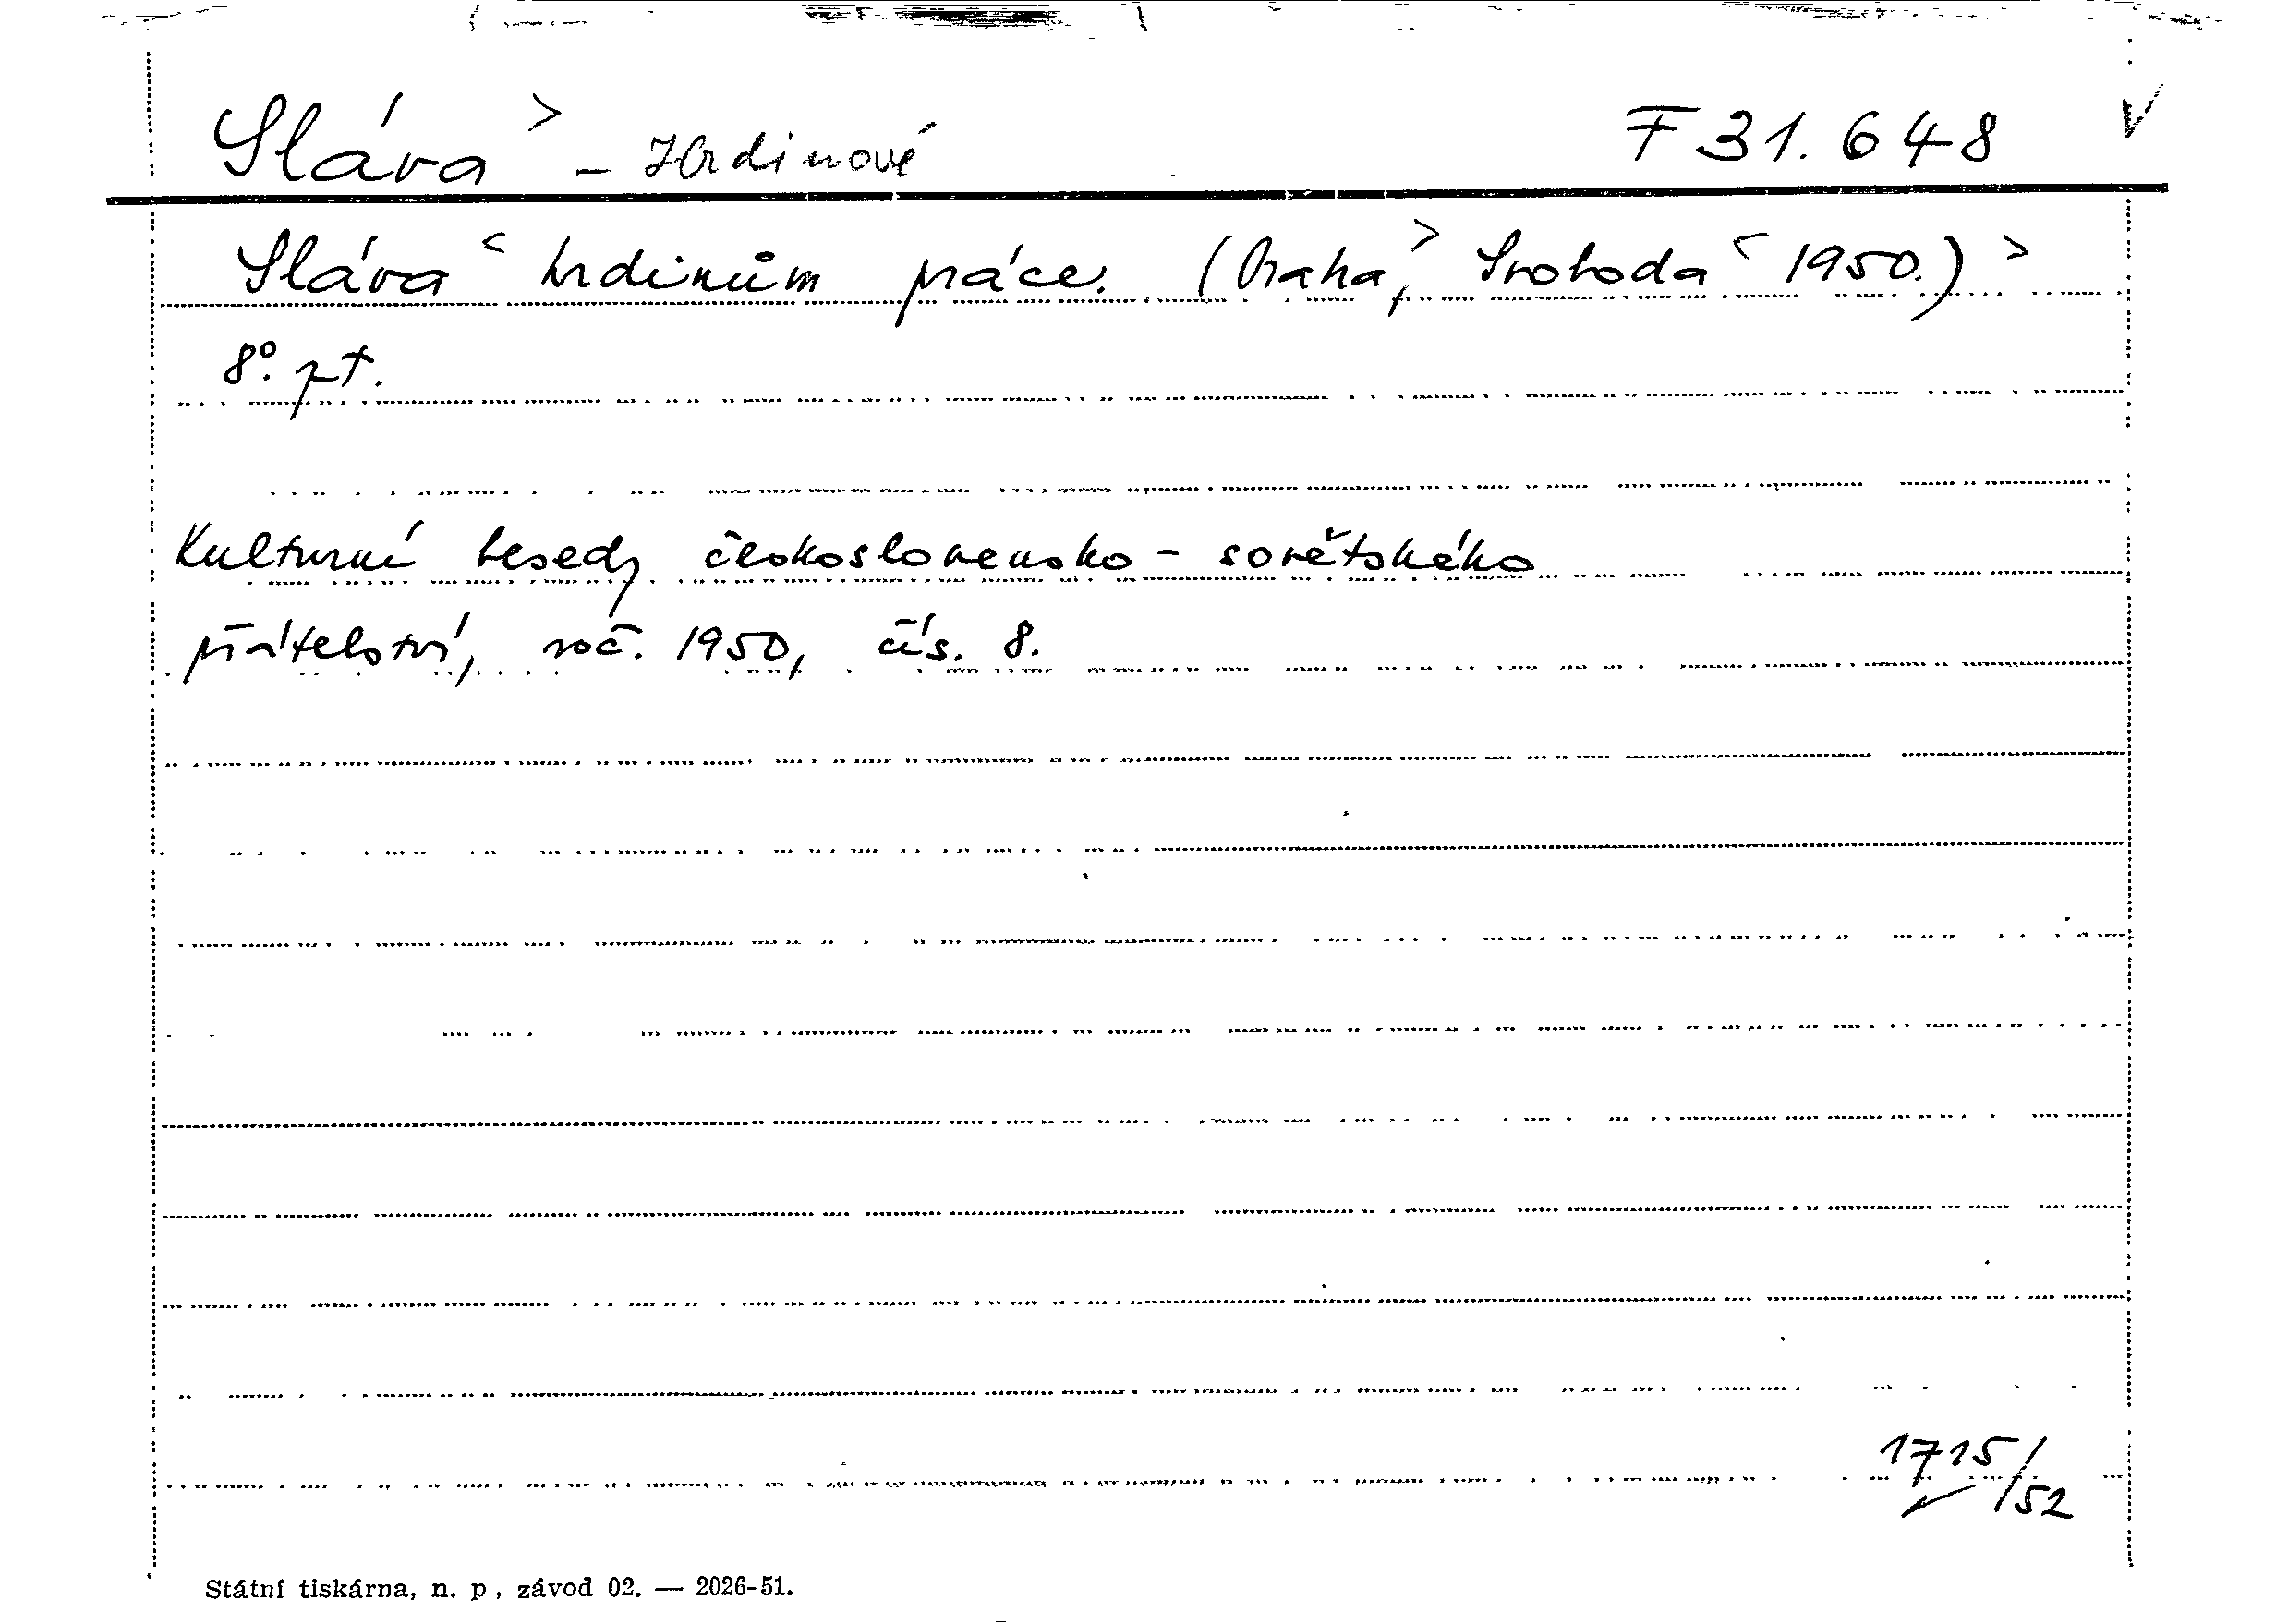 Sláva > - Hrdinové F 31.648 V
Sláva < hrdinům práce. (Praha, > Svoboda < 1950.) >
8°. př.
Kulturní besedy československo - sovětského
přátelství, roč. 1950, čís. 8.
1715/52
Státní tiskárna, n. p, závod 02. — 2026-51.